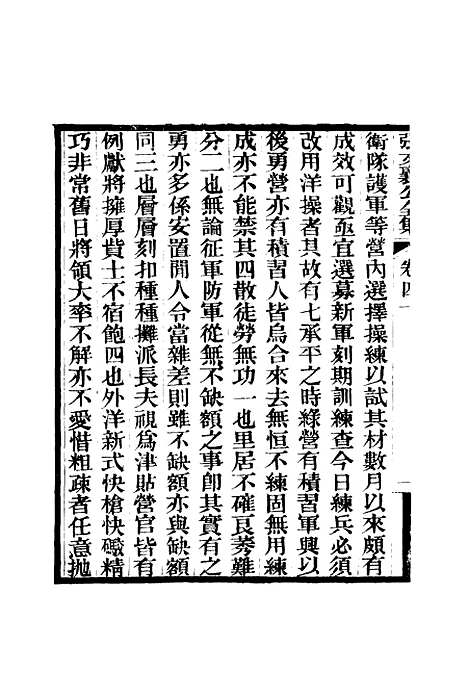 張文襄公全集 卷四十 一
衛隊護軍等營內選擇操練以試其材數月以來頗有
成效可觀亟宜選募新軍刻期訓練查今日練兵必須
改用洋操者其故有七承平之時綠營有積習軍興以
後勇營亦有積習人皆烏合來去無恒不練固無用練
成亦不能禁其四散徒勞無功一也里居不確良莠難
分二也無論征軍防軍從無不缺額之事卽其實有之
勇亦多係安置閒人令當雜差則雖不缺額亦與缺額
同三也層層刻扣種種攤派長夫視爲津貼營官皆有
例獻將擁厚貲士不宿飽四也外洋新式快槍快礮精
巧非常舊日將領大率不解亦不愛惜粗疎者任意拋